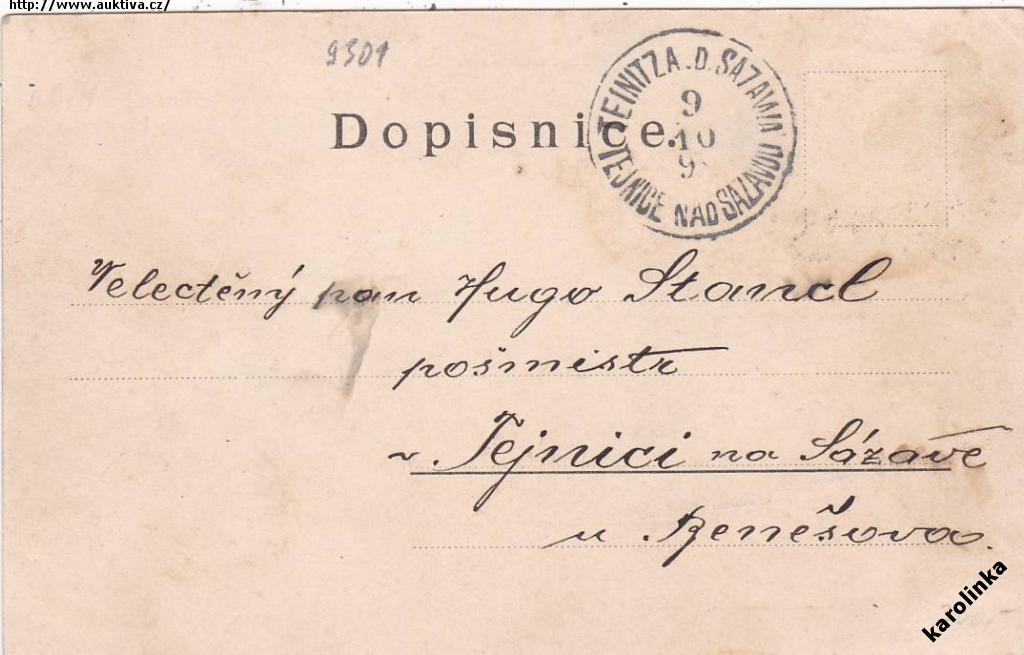 http://www.auktiva.cz/
9301
Dopisnice.
TEINITZ A.D. SAZAWA
9
10
9
TEJNICE NAD SAZAVOU
Velectěný pan Hugo Stancl
pošmistr
v Tejnici na Sázavě
u Benešova.
karolinka